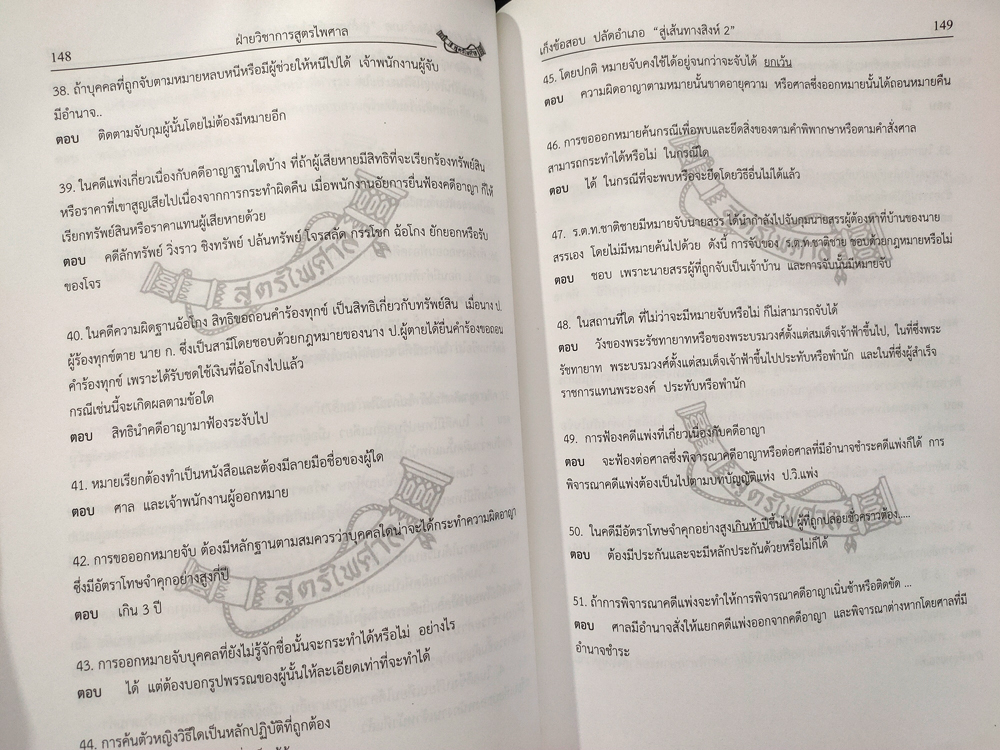 148
ฝ่ายวิชาการสูตรไพศาล
38. ถ้าบุคคลที่ถูกจับตามหมายหลบหนีหรือมีผู้ช่วยให้หนีไปได้ เจ้าพนักงานผู้จับ
มีอำนาจ..
ตอบ ติดตามจับกุมผู้นั้นโดยไม่ต้องมีหมายอีก
39. ในคดีแพ่งเกี่ยวเนื่องกับคดีอาญาฐานใดบ้าง ที่ถ้าผู้เสียหายมีสิทธิที่จะเรียกร้องทรัพย์สิน
หรือราคาที่เขาสูญเสียไปเนื่องจากการกระทำผิดคืน เมื่อพนักงานอัยการยื่นฟ้องคดีอาญา ก็ให้
เรียกทรัพย์สินหรือราคาแทนผู้เสียหายด้วย
ตอบ คดีลักทรัพย์ วิ่งราว ชิงทรัพย์ ปล้นทรัพย์ โจรสลัด กรรโชก ฉ้อโกง ยักยอกหรือรับ
ของโจร
40. ในคดีความผิดฐานฉ้อโกง สิทธิขอถอนคำร้องทุกข์ เป็นสิทธิเกี่ยวกับทรัพย์สิน เมื่อนาง ป.
ผู้ร้องทุกข์ตาย นาย ก. ซึ่งเป็นสามีโดยชอบด้วยกฎหมายของนาง ป.ผู้ตายได้ยื่นคำร้องขอถอน
คำร้องทุกข์ เพราะได้รับชดใช้เงินที่ฉ้อโกงไปแล้ว
กรณีเช่นนี้จะเกิดผลตามข้อใด
ตอบ สิทธินำคดีอาญามาฟ้องระงับไป
41. หมายเรียกต้องทำเป็นหนังสือและต้องมีลายมือชื่อของผู้ใด
ตอบ ศาล และเจ้าพนักงานผู้ออกหมาย
42. การขอออกหมายจับ ต้องมีหลักฐานตามสมควรว่าบุคคลใดน่าจะได้กระทำความผิดอาญา
ซึ่งมีอัตราโทษจำคุกอย่างสูงกี่ปี
ตอบ เกิน 3 ปี
43. การออกหมายจับบุคคลที่ยังไม่รู้จักชื่อนั้นจะกระทำได้หรือไม่ อย่างไร
ตอบ ได้ แต่ต้องบอกรูปพรรณของผู้นั้นให้ละเอียดเท่าที่จะทำได้
44. การค้นตัวหญิงวิธีใดเป็นหลักปฏิบัติที่ถูกต้อง
สูตรไพศาล
สูตรไพศาล
เก็งข้อสอบ ปลัดอำเภอ "สู่เส้นทางสิงห์ 2"
149
45. โดยปกติ หมายจับคงใช้ได้อยู่จนกว่าจะจับได้ ยกเว้น
ตอบ ความผิดอาญาตามหมายนั้นขาดอายุความ หรือศาลซึ่งออกหมายนั้นได้ถอนหมายคืน
46. การขอออกหมายค้นกรณีเพื่อพบและยึดสิ่งของตามคำพิพากษาหรือตามคำสั่งศาล
สามารถกระทำได้หรือไม่ ในกรณีใด
ตอบ ได้ ในกรณีที่จะพบหรือจะยึดโดยวิธีอื่นไม่ได้แล้ว
47. ร.ต.ท.ชาติชายมีหมายจับนายสรร ได้นำกำลังไปจับกุมนายสรรผู้ต้องหาที่บ้านของนาย
สรรเอง โดยไม่มีหมายค้นไปด้วย ดังนี้ การจับของ ร.ต.ท.ชาติชาย ชอบด้วยกฎหมายหรือไม่
ตอบ ชอบ เพราะนายสรรผู้ที่ถูกจับเป็นเจ้าบ้าน และการจับนั้นมีหมายจับ
48. ในสถานที่ใด ที่ไม่ว่าจะมีหมายจับหรือไม่ ก็ไม่สามารถจับได้
ตอบ วังของพระรัชทายาทหรือของพระบรมวงศ์ตั้งแต่สมเด็จเจ้าฟ้าขึ้นไป, ในที่ซึ่งพระ
รัชทายาท พระบรมวงศ์ตั้งแต่สมเด็จเจ้าฟ้าขึ้นไปประทับหรือพำนัก และในที่ซึ่งผู้สำเร็จ
ราชการแทนพระองค์ ประทับหรือพำนัก
49. การฟ้องคดีแพ่งที่เกี่ยวเนื่องกับคดีอาญา
ตอบ จะฟ้องต่อศาลซึ่งพิจารณาคดีอาญาหรือต่อศาลที่มีอำนาจชำระคดีแพ่งก็ได้ การ
พิจารณาคดีแพ่งต้องเป็นไปตามบทบัญญัติแห่ง ป.วิ.แพ่ง
50. ในคดีมีอัตราโทษจำคุกอย่างสูงเกินห้าปีขึ้นไป ผู้ที่ถูกปล่อยชั่วคราวต้อง.....
ตอบ ต้องมีประกันและจะมีหลักประกันด้วยหรือไม่ก็ได้
51. ถ้าการพิจารณาคดีแพ่งจะทำให้การพิจารณาคดีอาญาเนิ่นช้าหรือติดขัด ...
ตอบ ศาลมีอำนาจสั่งให้แยกคดีแพ่งออกจากคดีอาญา และพิจารณาต่างหากโดยศาลที่มี
อำนาจชำระ